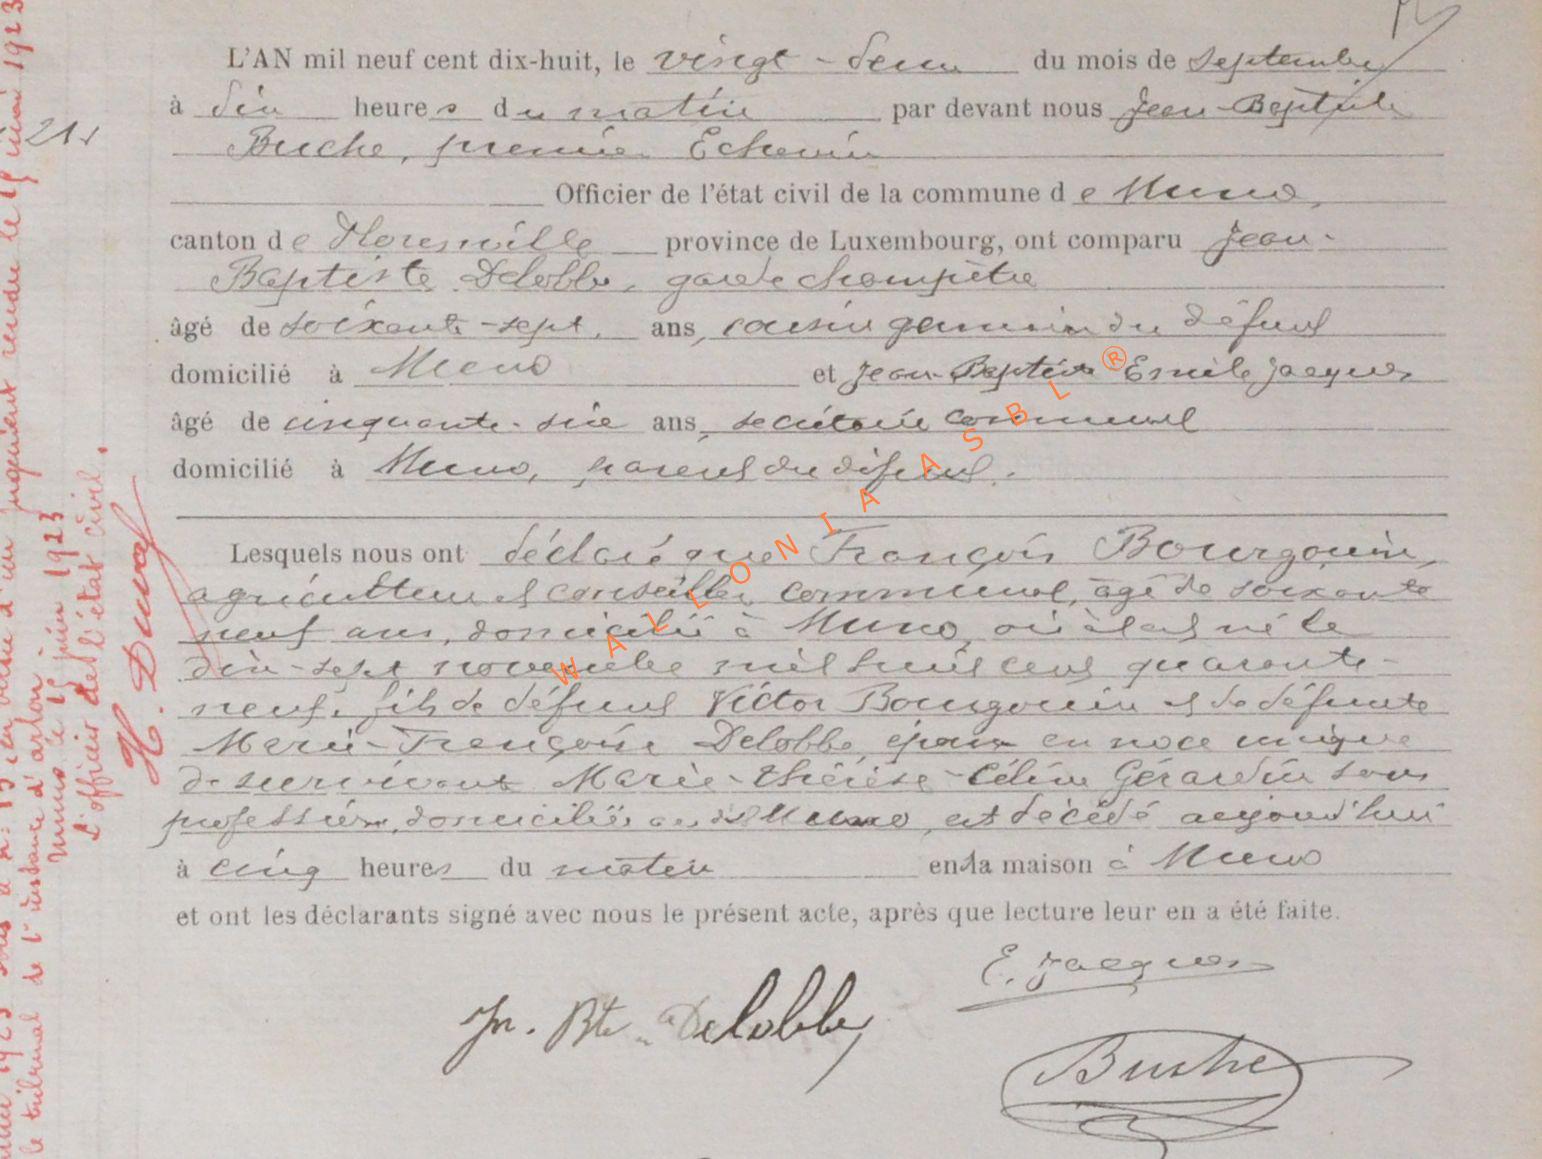 L'AN mil neuf cent dix-huit, le vingt-deux du mois de septembre
à dix heures du matin par devant nous Jean-Baptiste
Buche, premier Echevin
Officier de l'état civil de la commune de Muno,
canton de Florenville province de Luxembourg, ont comparu Jean-
Baptiste Delobbe, garde champêtre
âgé de soixante-sept ans, cousin germain du défunt
domicilié à Muno et Jean-Baptiste Emile Jacques
âgé de cinquante-six ans, secrétaire communal
domicilié à Muno, parent du défunt.
Lesquels nous ont déclaré que François Bourgouin,
agriculteur et conseiller communal, âgé de soixante
neuf ans, domicilié à Muno, où il est né le
dix-sept novembre mil huit cent quarante-
neuf, fils de défunt Victor Bourgouin et de défunte
Marie-Françoise Delobbe, époux en noce unique
de survivante Marie-Thérèse-Céline Gérardin sans
profession, domiciliée au dit Muno, est décédé aujourd'hui
à cinq heures du matin en la maison à Muno
et ont les déclarants signé avec nous le présent acte, après que lecture leur en a été faite.
E. Jacques
Jn. Bte Delobbe
Buche
21
1923 sous le n: 13 en vertu d'un jugement rendu le 15 mai 1923
le tribunal de 1re instance d'arlon.
Muno le 15 juin 1923
L'officier de l'état civil.
H. Duval
WALLONIA ASBL ®